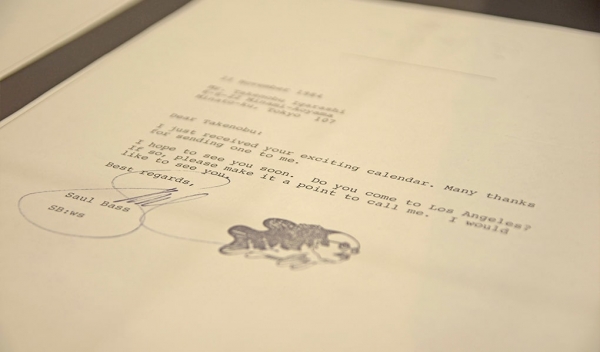 12 November 1984
Mr. Takenobu Igarashi
Minami-Aoyama
Minato-Ku, Tokyo 107
Dear Takenobu:
I just received your exciting calendar. Many thanks
for sending one to me.
I hope to see you soon. Do you come to Los Angeles?
If so, please make it a point to call me. I would
like to see you.
Best regards,
Saul Bass
SB:ws